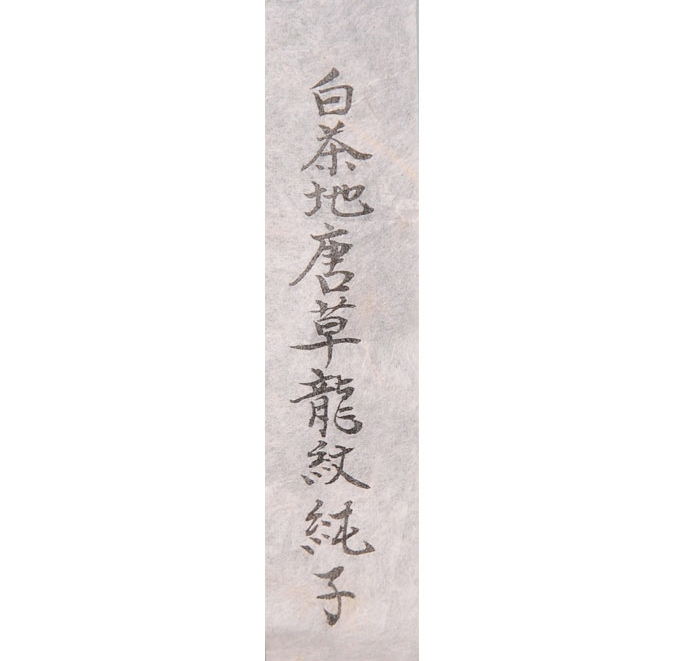 白茶地唐草龍紋純子